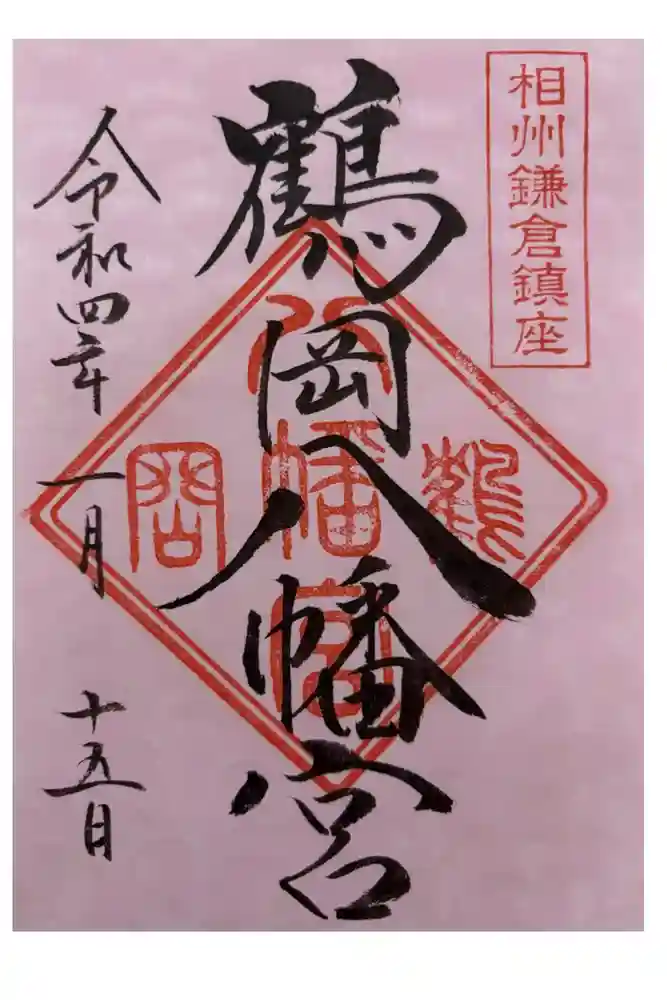 相州鎌倉鎮座
鶴岡八幡宮
鶴岡
八幡宮
令和四年 一月 十五日